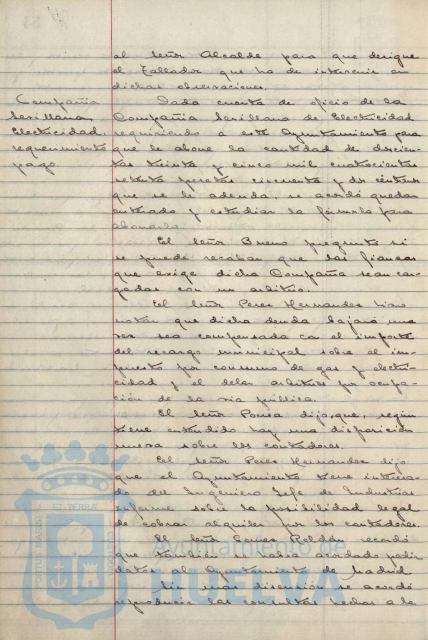 al Señor Alcalde para que designe
el Tallador que ha de intervenir en
dichas observaciones.
Compañia
Sevillana
Electricidad,
requerimiento
pago
Dada cuenta de oficio de la
Compañia Sevillana de Electricidad
requiriendo a este Ayuntamiento para
que le abone la cantidad de doscien-
tas treinta y cinco mil cuatrocientas
setenta pesetas cincuenta y dos céntimos
que se le adenda, se acordó quedar
enterado y estudiar la fórmula para
abonarla.
El Señor Bueno pregunta si
se puede recabar que las fianzas
que exige dicha Compañia sean car-
gadas con un arbitrio.
El Señor Perez Hernandez hizo
notar que dicha deuda bajará una
vez sea compensada con el importe
del recargo municipal sobre el im-
puesto por consumo de gas y electri-
cidad y el del arbitrio por ocupa-
ción de la via pública.
El Señor Ponsa dijo, que, según
tiene entendido hay una disposicion
nueva sobre los contadores.
El Señor Perez Hernandez dijo
que el Ayuntamiento tiene interesa-
do del Ingeniero Jefe de Industrias
informe sobre la posibilidad legal
de cobrar alquiler por los contadores.
El Señor Gomez Roldán recordó
que tambien habia acordado pedir
datos al Ayuntamiento de Madrid
Sin mas discusión se acordó
reproducir las consultas hechas a la
PORTUS MARIS
ET TERRÆ
CUSTODIA
Ayuntamiento de
HUELVA